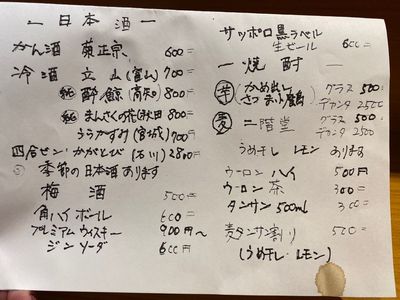 ー日本酒ー
かん酒 菊正宗 600=
冷酒 立山(富山) 700=
㊥酔鯨(高知) 800=
まんさくの花(秋田 800=
うらかすみ(宮城) 700=
四合ビン・かがとび(石川) 2800=
季節の日本酒あります
梅酒 500=
角ハイボール 600=
プレミアムウィスキー 900円〜
ジンソーダ 600円
サッポロ黒ラベル
生ビール 600=
ー焼酎ー
芋 (かめ出し グラス 500=
さつま 鶴 デキャンタ 2500
麦 二階堂 グラス 500=
デキャンタ 2500
うめ干し レモン あります
ウーロンハイ 500円
ウーロン茶 300=
タンサン 500ml 300=
麦タンサン割り 500=
(うめ干し レモン)